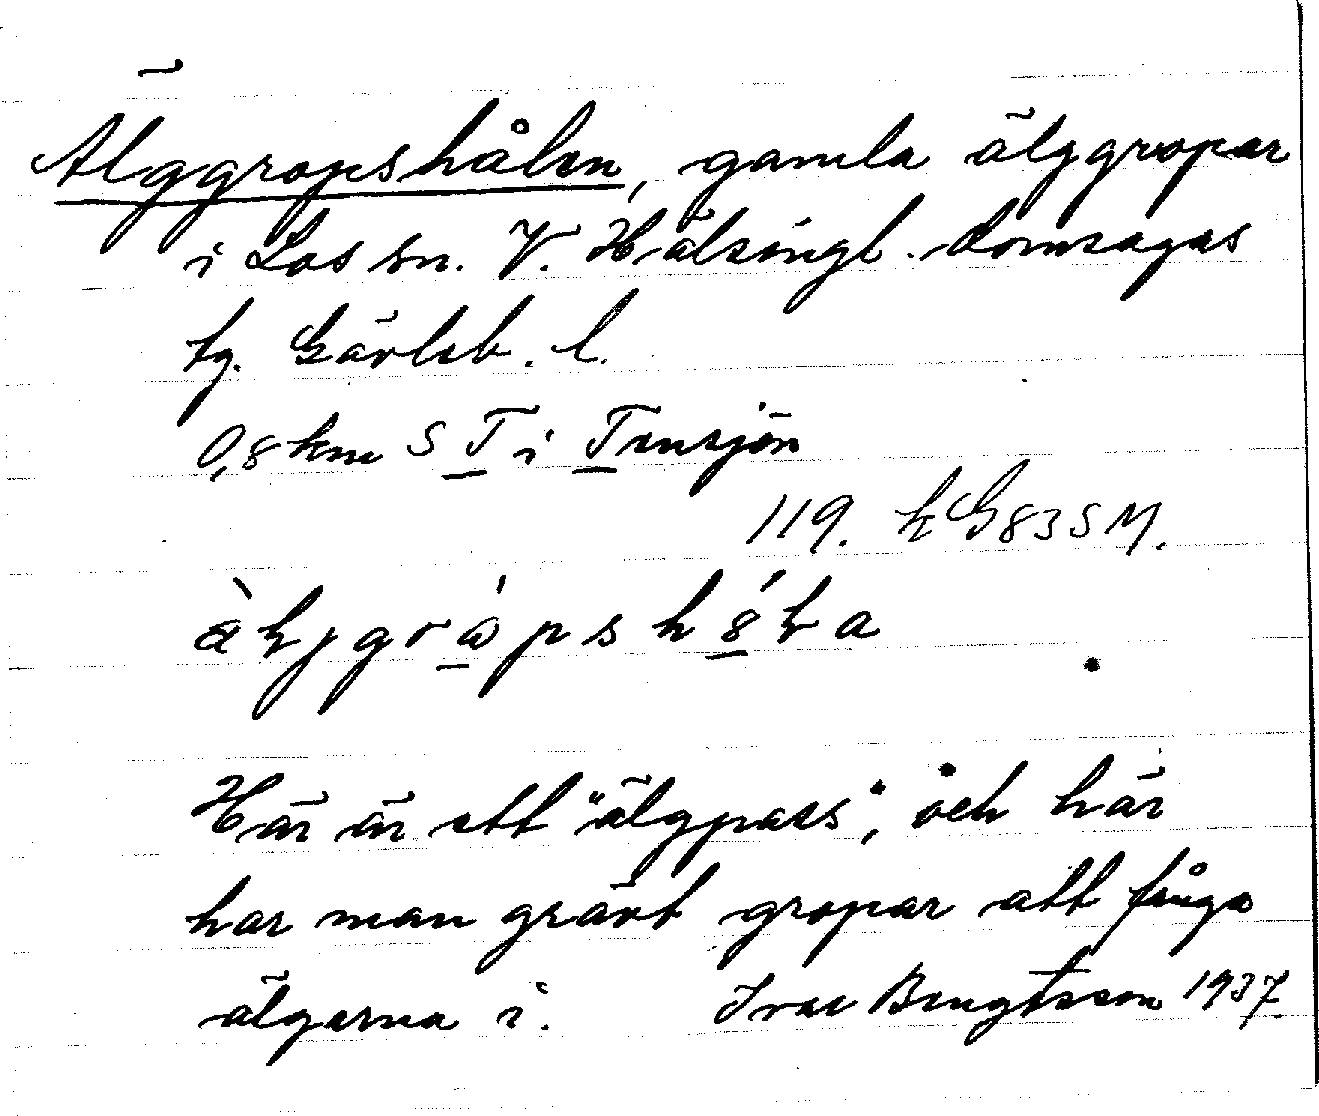 Älggropshålen, gamla älggropar
i Los sn. V. Hälsingl. domsagas
tg. Gävleb. l.
0,8 km S T i Tensjön
119. k G 83 S M.
Här är ett "älgpass", och här
har man grävt gropar att fånga
älgarna i. Ivar Bengtsson 1937